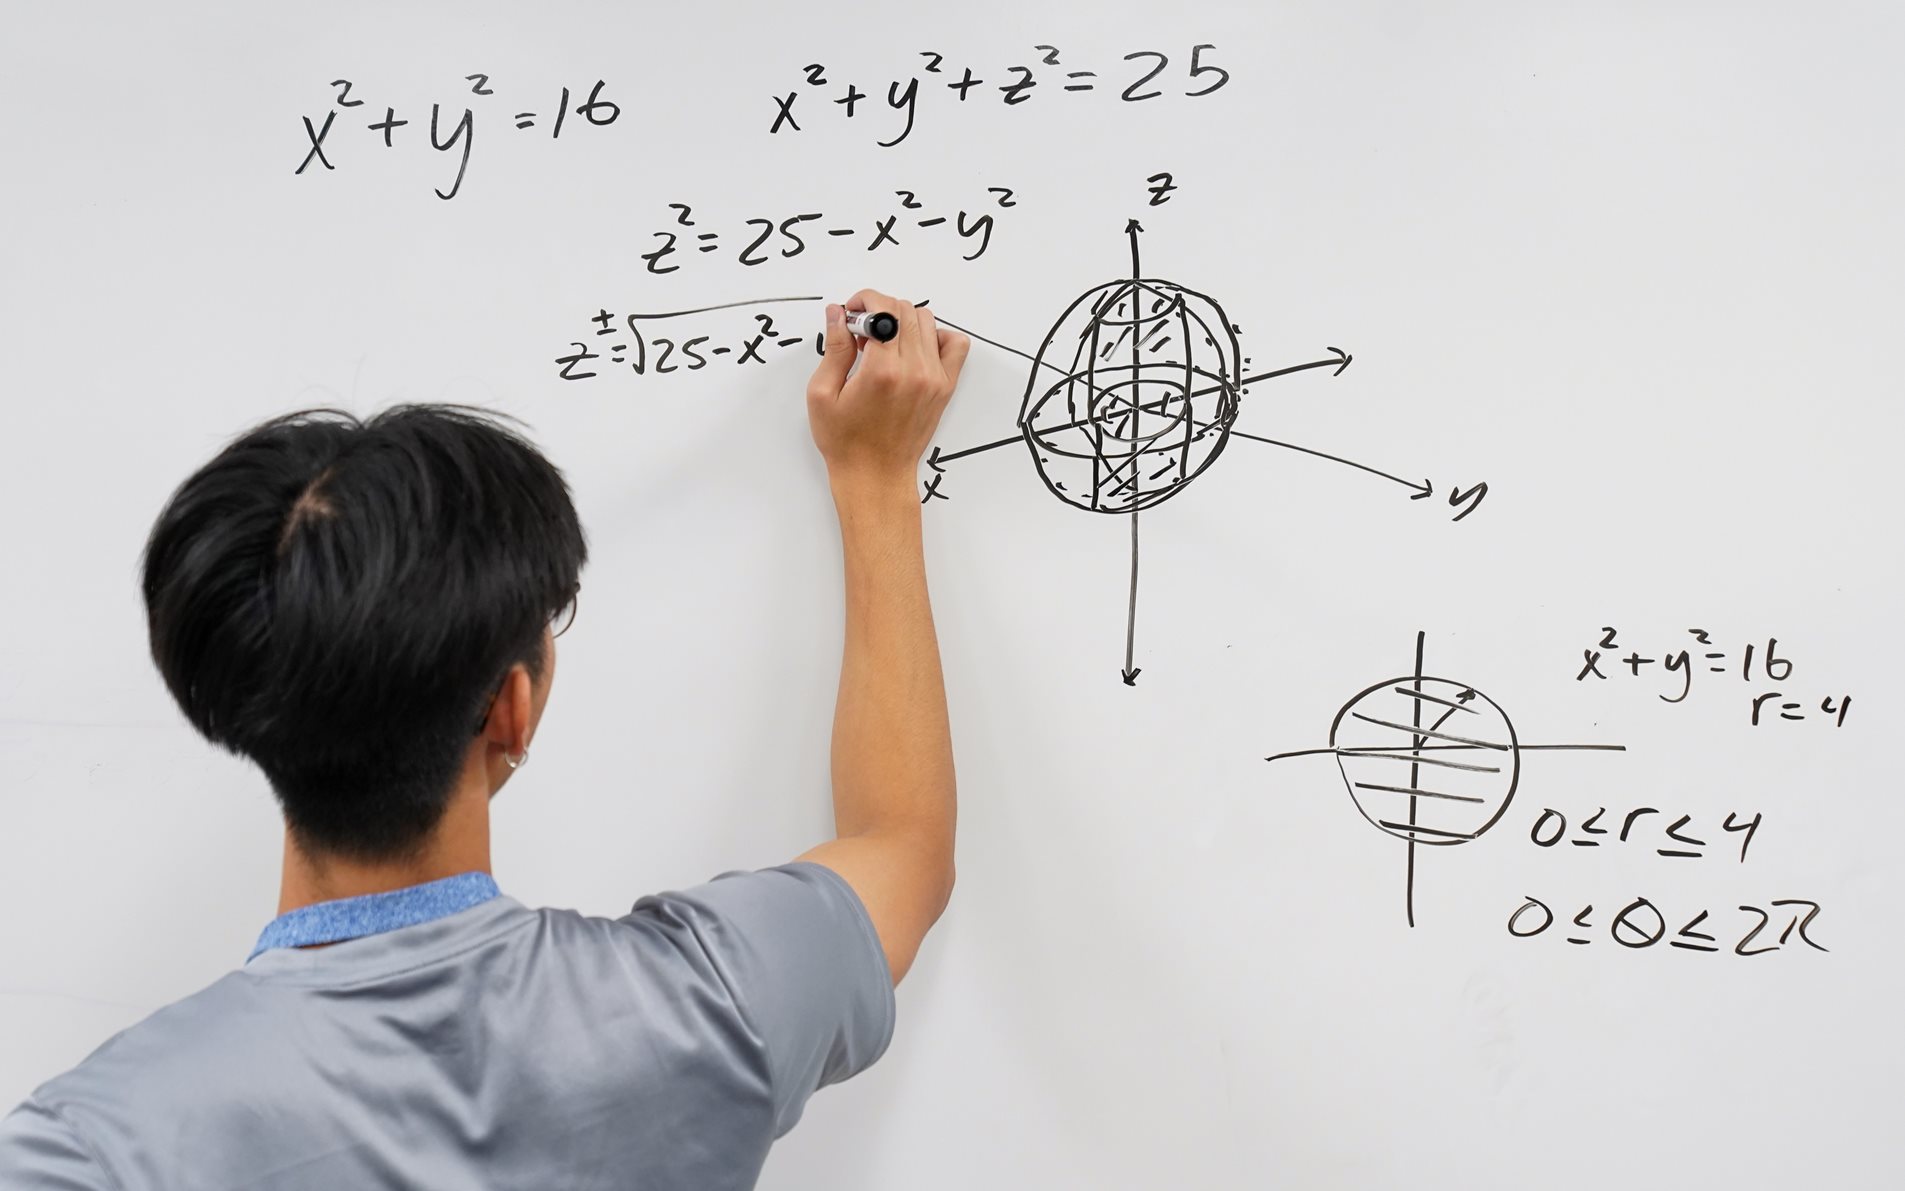 x²+y²=16
x²+y²+z²=25
z²=25-x²-y²
z=±√25-x²-
z
x
y
x²+y²=16
r=4
0≤r≤4
0≤θ≤2π